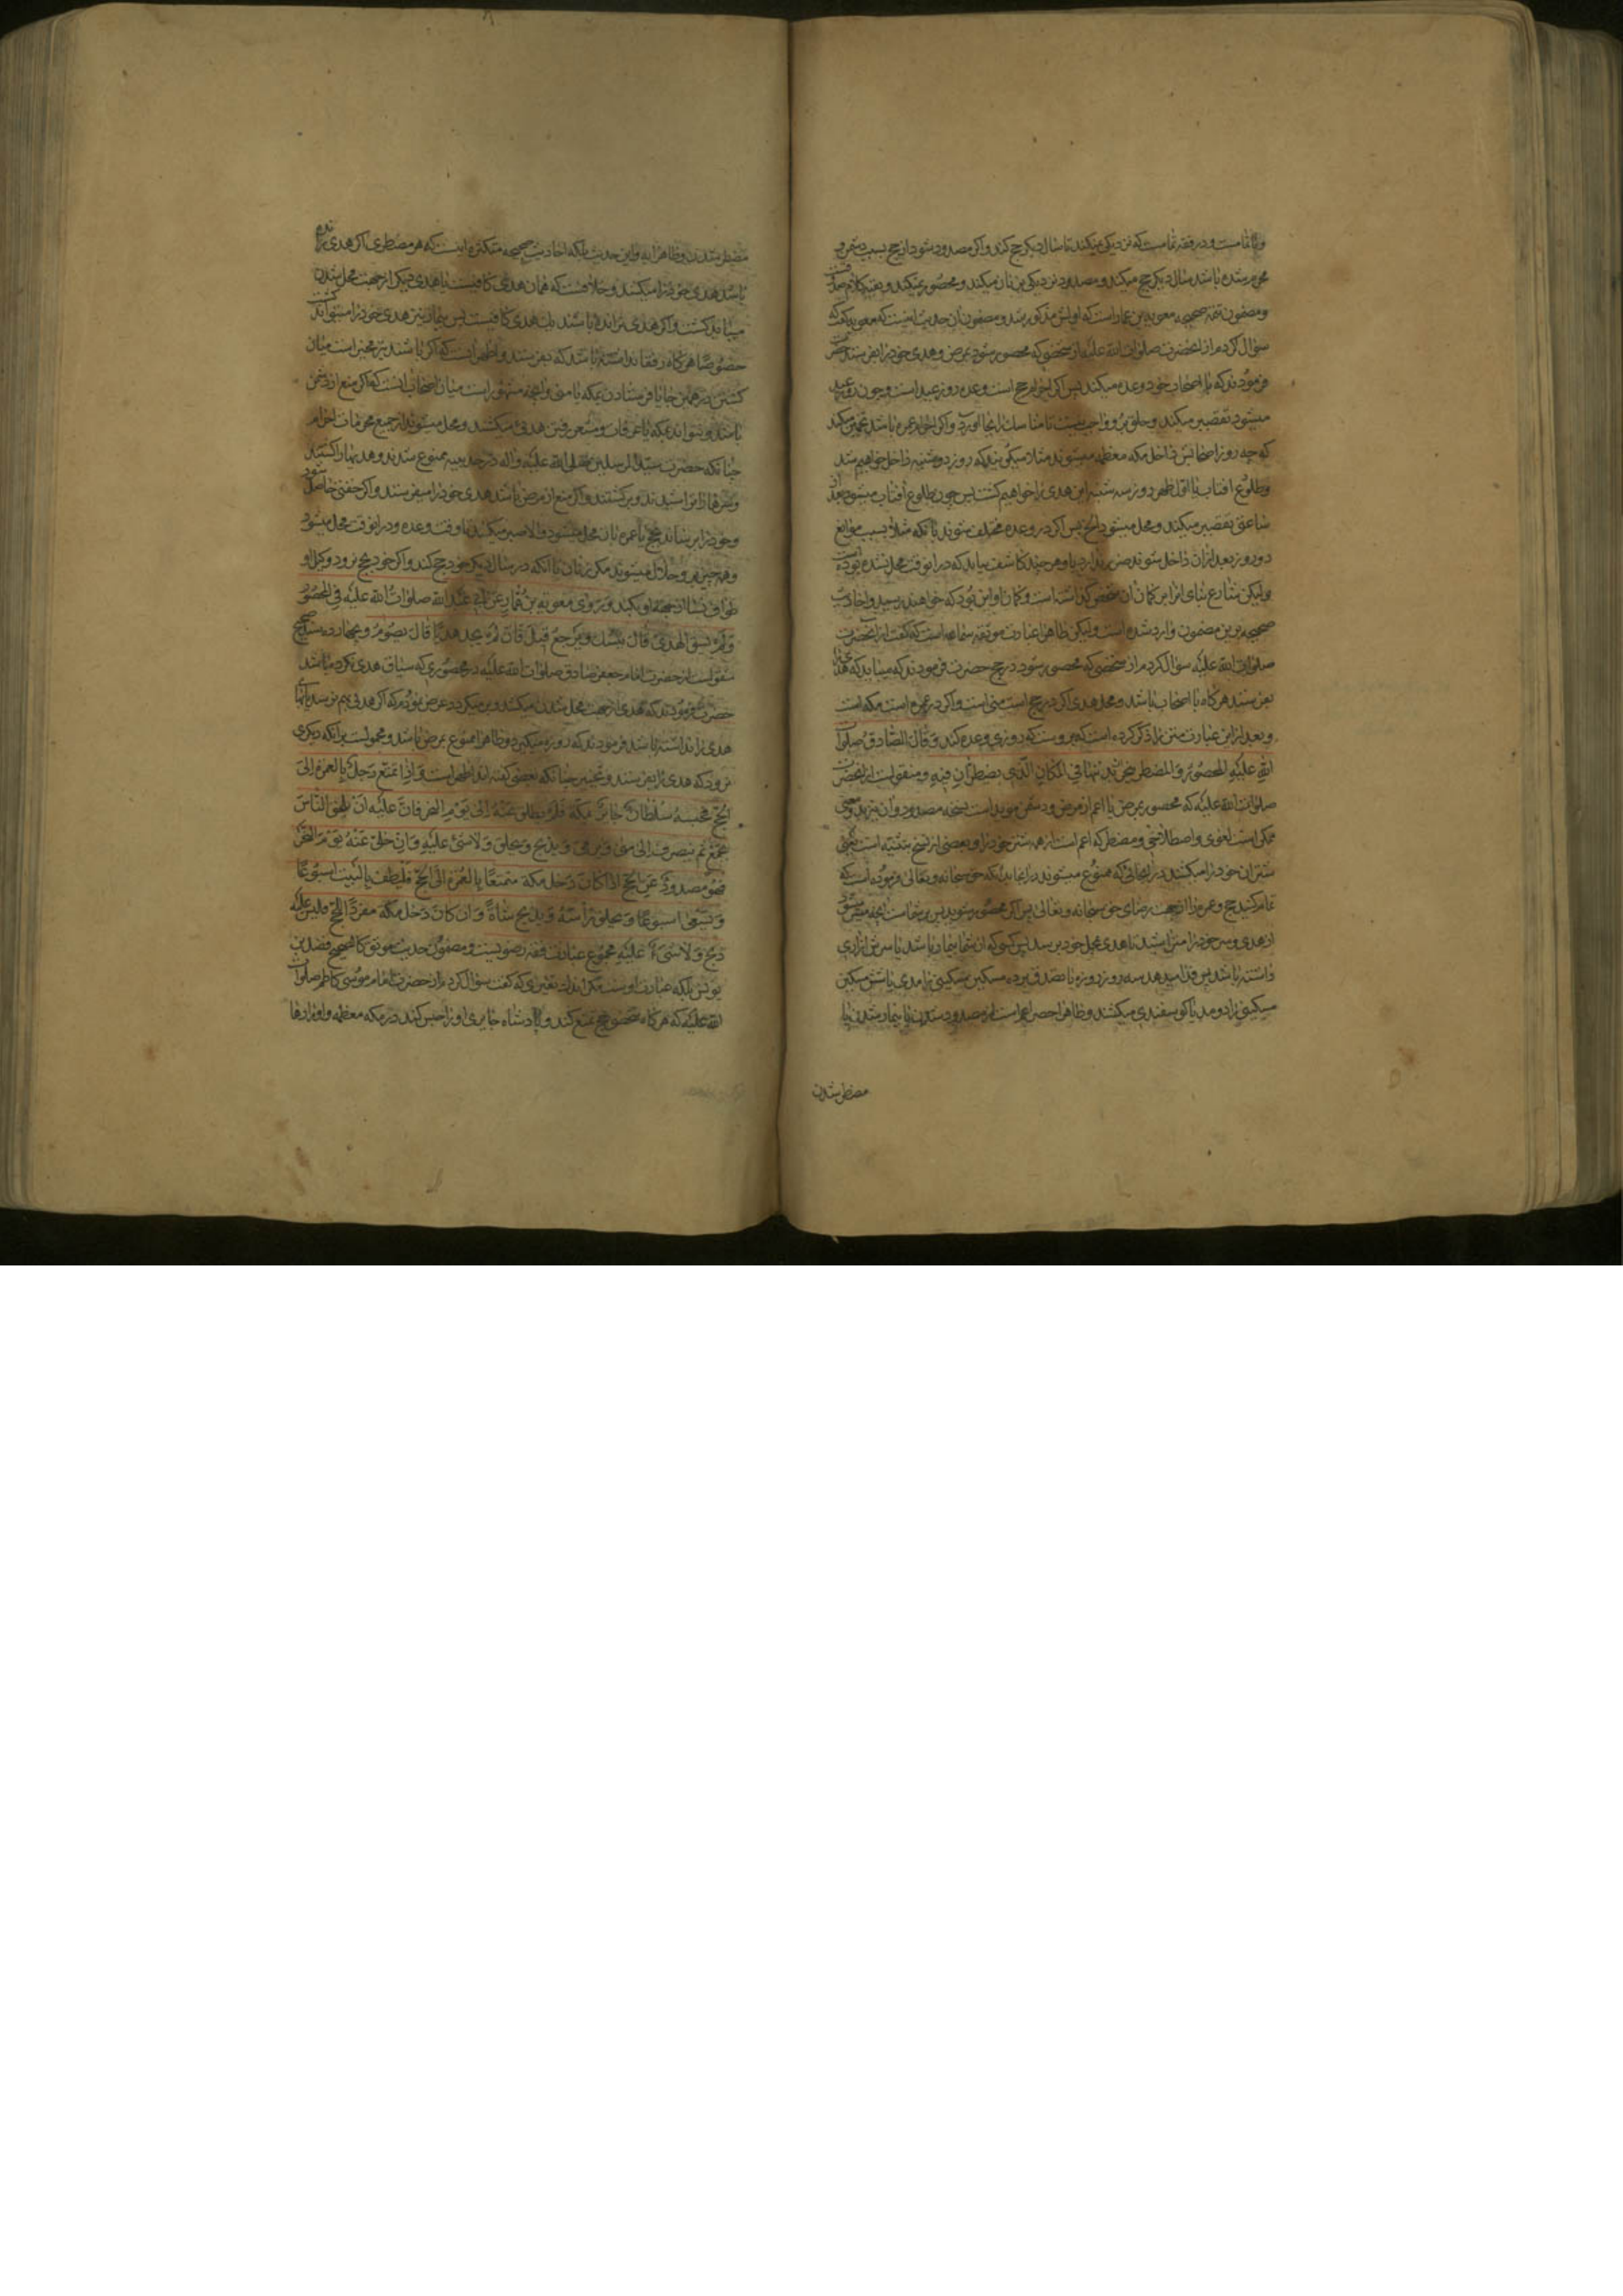 و باتمامست و در فقه تمامست که نزدیکی نمیکند تا سال دیگر حج کند و اگر مصدود شود از حج بسبب دشمن و
محرم شده باشد سال دیگر حج میکند و مصدود نزدیکی بزنان میکند و محصور نمیکند و بقیه کلام صدوقست
و مضمون تتمه صحیحه معویه بن عمار است که اولش مذکور شد و مضمون آن حدیث اینست که معویه گفت که
سؤال کردم از آنحضرت صلوات الله علیه از شخصی که محصور شود بمرض و هدی خود را بفرستد حضرت
فرمودند که با اصحاب خود وعده میکند پس اگر احرام حج است وعده روز عید است و چون روز عید
میشود تقصیر میکند و حلق برو واجب نیست تا مناسک را بجا آورد و اگر احرام عمره باشد تخمین میکند
که چه روز اصحابش داخل مکه معظمه میشوند مثلا میگویند که روز دوشنبه داخل خواهیم شد
و طلوع افتاب یا اول ظهر روز سه شنبه این هدی را خواهیم کشت پس چون طلوع آفتاب میشود بعد از
ساعتی تقصیر میکند و محل میشود الخ پس اگر در وعده مختلف شوند یا آنکه مثلا بسبب موانع
دو روز بعد از آن داخل شوند ضرر ندارد و هر چند کاشف بیاید که در آنوقت محل نشده بوده است
ولیکن شارع بنای امر را بر گمان آن شخص گذاشته است و گمان او این بود که خواهند رسید و احادیث
صحیحه برین مضمون وارد شده است ولیکن ظاهرا عبارت موثقه سماعه است که گفت از آنحضرت
صلوات الله علیه سؤال کردم از شخصی که محصور شود در حج حضرت فرمودند که میباید که هدی را
بفرستد هرگاه با اصحاب باشد و محل هدی اگر در حج است منی است و اگر در عمره است مکه است
و بعد از این عبارت متن را ذکر کرده است که بروست که روزی وعده کند وَقالَ الصّادقُ صلوات
اللهِ علیهِ المحصُورُ وَالمضطر ینحران بدنتهما فی المکانِ الّذی یضطرّانِ فیهِ و منقولست از آنحضرت
صلوات الله علیه که محصور بمرض یا اعم از مرض و دشمن مؤید است نسخه مصدود و آن نیز بدو معنی
ممکن است لغوی و اصطلاحی و مضطر که اعم است از همه شتر خود را و در بعضی از نسخ تثنیه است یعنی
شتران خود را میکشند در آنجائی که ممنوع میشوند بدانکه حق سبحانه و تعالی فرموده است که
تمام کنید حج و عمره را از جهت رضای حق سبحانه و تعالی پس اگر محصور شوید پس بر شماست آنچه میسّر شود
از هدی و سر خود را متراشید تا هدی بمحل خود برسد پس کسی که از شما بیمار باشد یا سرش آزاری
داشته باشد پس فدا میدهد سه روز روزه یا تصدق بر ده مسکین بهر مسکینی را مدی یا شش مسکین
مسکینی را دو مد یا گوسفندی میکشند و ظاهرا حصر اعم است از مصدود شدن یا بیمار شدن یا
مضطر شدن
مضطر شدن و ظاهر آیه و این حدیث بلکه احادیث صحیحه متکثره اینست که هر مضطری اگر هدی رانده
باشد هدی خود را میکشد و خلافست که همان هدی کافیست یا هدی دیگر از جهت محل شدن
میباید کشت و اگر هدی نرانده باشد یک هدی کافیست پس بیمار نیز هدی خود را میتواند کشت
خصوصًا هرگاه رفقا نداشته باشد که بفرستد و اظهر آنست که اگر باشند نیز مخیر است میان
کشتن در همان جا یا فرستادن بمکه یا منی و آنچه مشهور است میان اصحاب آنست که اگر منع از دشمن
باشد و نتواند بمکه یا عرفات و مشعر رفتن هدی میکشد و محل میشوند از جمیع محرمات احرام
چنانکه حضرت سید المرسلین صلی الله علیه و آله در حدیبیه ممنوع شدند و هدیها را کشتند
و سرها را تراشیدند و برگشتند و اگر منع از مرض باشد هدی خود را میفرستد و اگر خفتی حاصل شود
و خود را برساند بحج یا عمره بآن محل میشود و الا صبر میکند تا وقت وعده و در آنوقت محل میشود
و همه چیز برو حلال میشوند مگر زنان تا آنکه در سال دیگر خود حج کند و اگر خود بحج نرود وکیل او
طواف نسا از جهة او بکند وَرَوای معویة بن عُمّارٍ عن ابی عبدالله صلواتُ الله علیه فی المحصُورِ
وَلَم یسق الهدیَ قالَ ینسُک و یرجعُ قیلَ فان لم یجد هدیًا قالَ یصُومُ و بچهارده سند صحیح
منقولست از حضرت امام جعفر صادق صلوات الله علیه در محصوری که سیاق هدی نکرده باشد
حضرت فرمودند که هدی از جهت محل شدن میکشد و برمیگردد عرض نمودم که اگر هدی بهم نرسد یا بهای
هدی را نداشته باشد فرمودند که روزه میگیرد و ظاهرا ممنوع بمرض باشد و محمولست بر آنکه دیگری
نرود که هدی را بفرستد و تخییر چنانکه بعضی گفته اند اظهر است وَاِذا تمتّع رَجلٌ بالعمرةِ الی
الحجّ فحبسهُ سُلطانٌ جائرٌ بمکةَ فلَم یطلق عنهُ الی یومِ النحرِ فانّ علیهِ ان یلحق النّاسَ
بجمعٍ ثم ینصرف الی منی ویرمی و یذبح و یحلق وَلا شئَ علیهِ وَ اِن خلّی عَنهُ یَومَ النحرِ
فهُو مصدودٌ عَنِ الحجّ ان کان دَخل مکة متمتعًا بالعُمرة الی الحجّ فَلیطف بالبیتِ اسبُوعًا
وَ یَسعی اسبوعًا وَ یحلق رأسَهُ وَ یذبح شاةً وَ ان کانَ دَخل مکّة مفردًا للحجّ فلیسَ علیهِ
ذبحٌ وَ لا شئَ علیهِ مجموع عبارت فقه رضویست و مضمون حدیث موثق کالصحیح فضل بن
یونس بلکه عبارت اوست مگر اندک تغییری که گفت سؤال کردم از حضرت امام موسی کاظم صلوات
الله علیه که هرگاه شخصی حج تمتع کند و پادشاه جایری او را حبس کند در مکه معظمه و او را رها